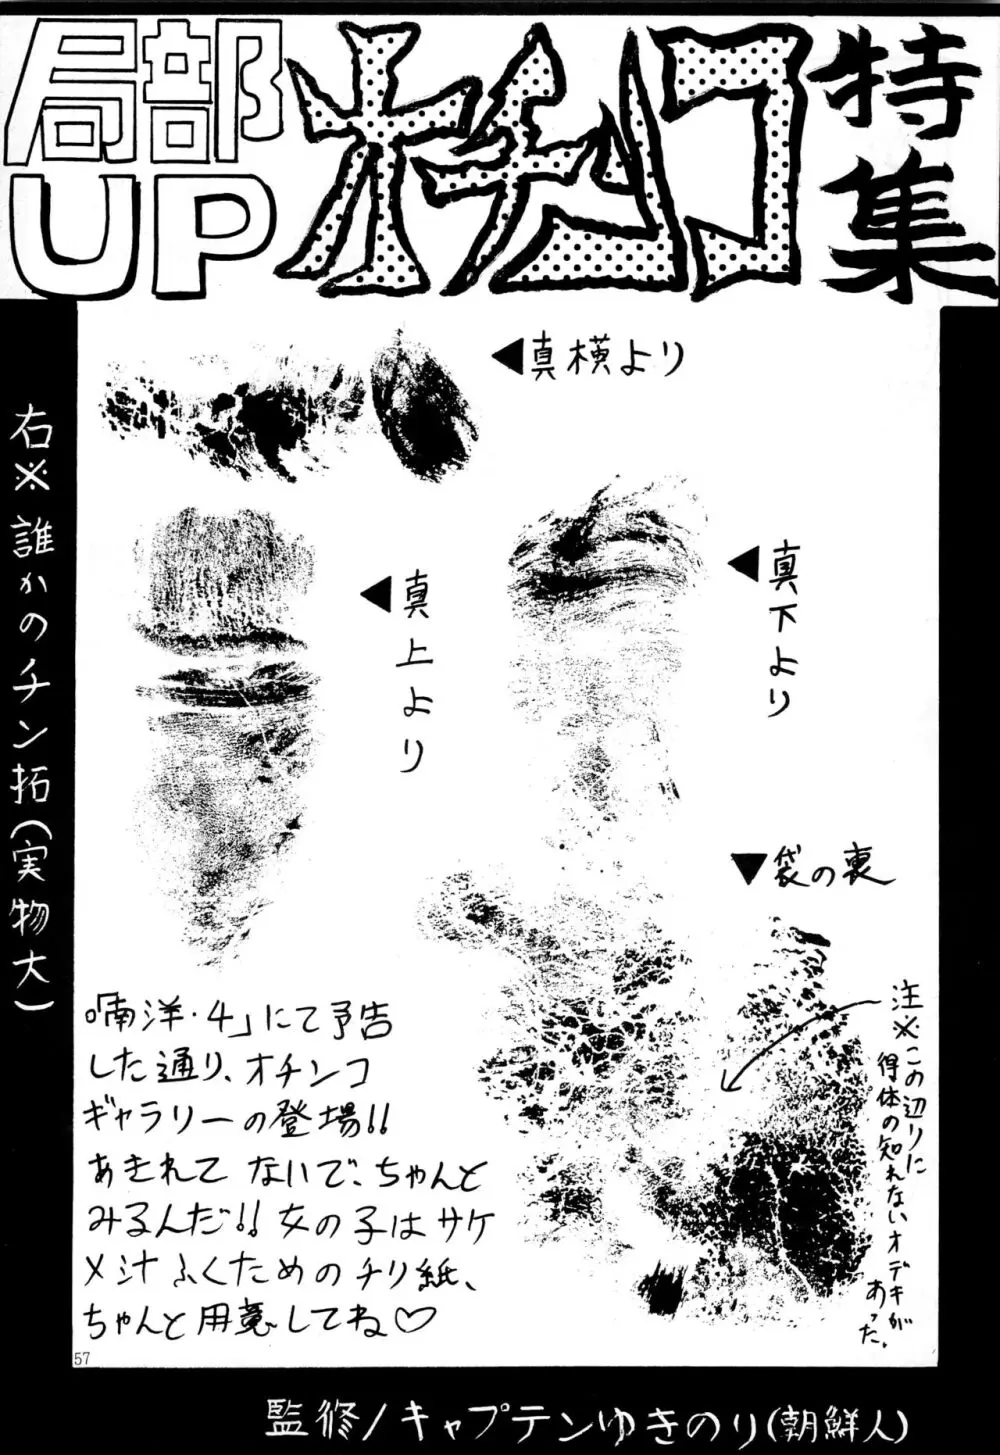 局部
UP
オチンコ
特集
◀真横より
◀真上より
◀真下より
▼袋の裏
右※誰かのチン拓(実物大)
注※この辺りに
得体の知れないオデキが
あった。
「喃洋・4」にて予告
した通り、オチンコ
ギャラリーの登場!!
あきれてないで、ちゃんと
みるんだ!!女の子はサケ
メ汁ふくためのチリ紙、
ちゃんと用意してね♡
57
監修/キャプテンゆきのり(朝鮮人)